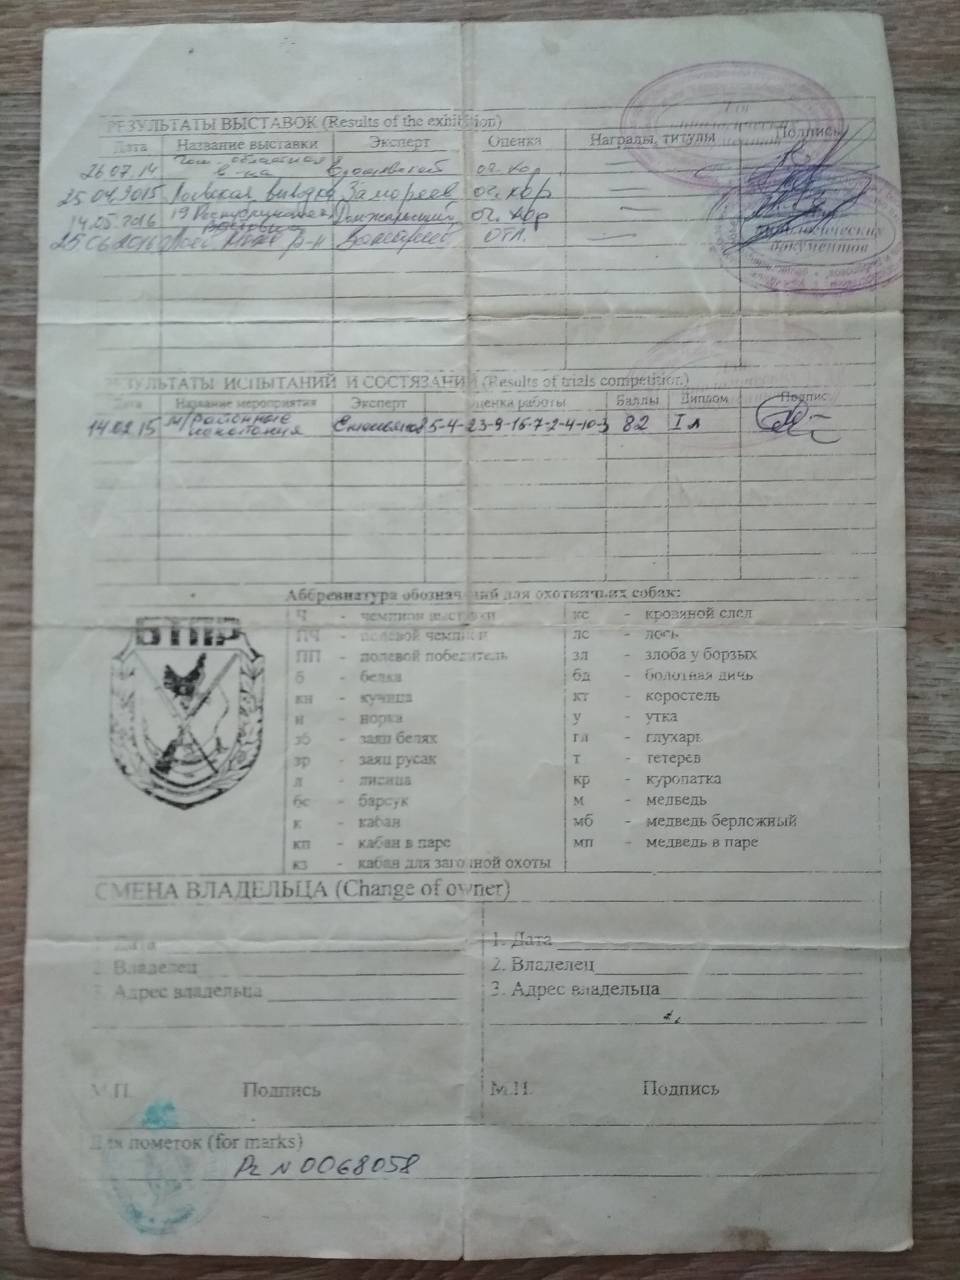 Для
кинологических
РЕЗУЛЬТАТЫ ВЫСТАВОК (Results of the exhibition)
Дата Название выставки Эксперт Оценка Награды, титулы Подпись
26.07.14 областная в-ка оч. хор. —
25.04.2015 выводка оч. хор —
14.05.2016 19 Республиканская оч. хор —
25.06.2016 р-н отл. —
кинологических
документов
РЕЗУЛЬТАТЫ ИСПЫТАНИЙ И СОСТЯЗАНИЙ (Results of trials competition.)
Дата Название мероприятия Эксперт Оценка работы Баллы Диплом Подпись
14.02.15 м/районные испытания 5-4-23-9-15-7-2-4-10-3 82 I л
Аббревиатура обозначений для охотничьих собак:
БТПР
Ч - чемпион выставки кс - кровяной след
ПЧ - полевой чемпион лс - лось
ПП - полевой победитель зл - злоба у борзых
б - белка бд - болотная дичь
кн - куница кт - коростель
н - норка у - утка
зб - заяц беляк гл - глухарь
зр - заяц русак т - тетерев
л - лисица кр - куропатка
бс - барсук м - медведь
к - кабан мб - медведь берложный
кп - кабан в паре мп - медведь в паре
кз - кабан для загонной охоты
СМЕНА ВЛАДЕЛЬЦА (Change of owner)
1. Дата 1. Дата
2. Владелец 2. Владелец
3. Адрес владельца 3. Адрес владельца
М.П. Подпись М.П. Подпись
Для пометок (for marks)
N 0068058